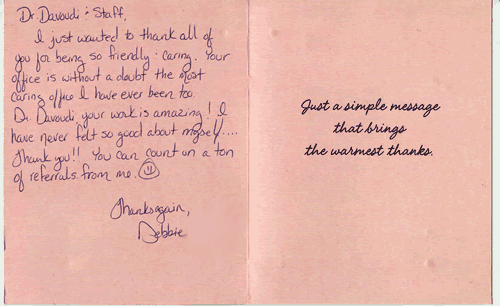 Dr. Davoudi & Staff,
I just wanted to thank all of
you for being so friendly & caring. Your
office is without a doubt the most
caring office I have ever been too.
Dr. Davoudi, your work is amazing! I
have never felt so good about myself....
Thank you!! You can count on a ton
of referrals from me.
Thanks again,
Debbie
Just a simple message
that brings
the warmest thanks.